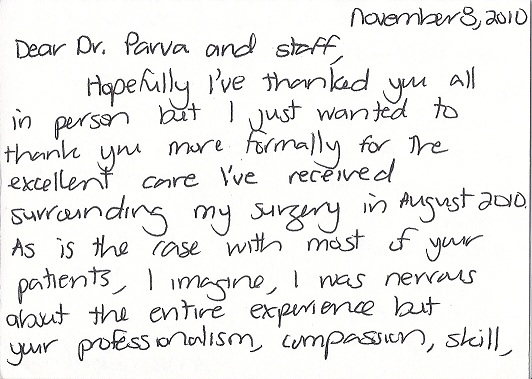 November 8, 2010
Dear Dr. Parva and staff,
Hopefully I've thanked you all
in person but I just wanted to
thank you more formally for the
excellent care I've received
surrounding my surgery in August 2010.
As is the case with most of your
patients, I imagine, I was nervous
about the entire experience but
your professionalism, compassion, skill,